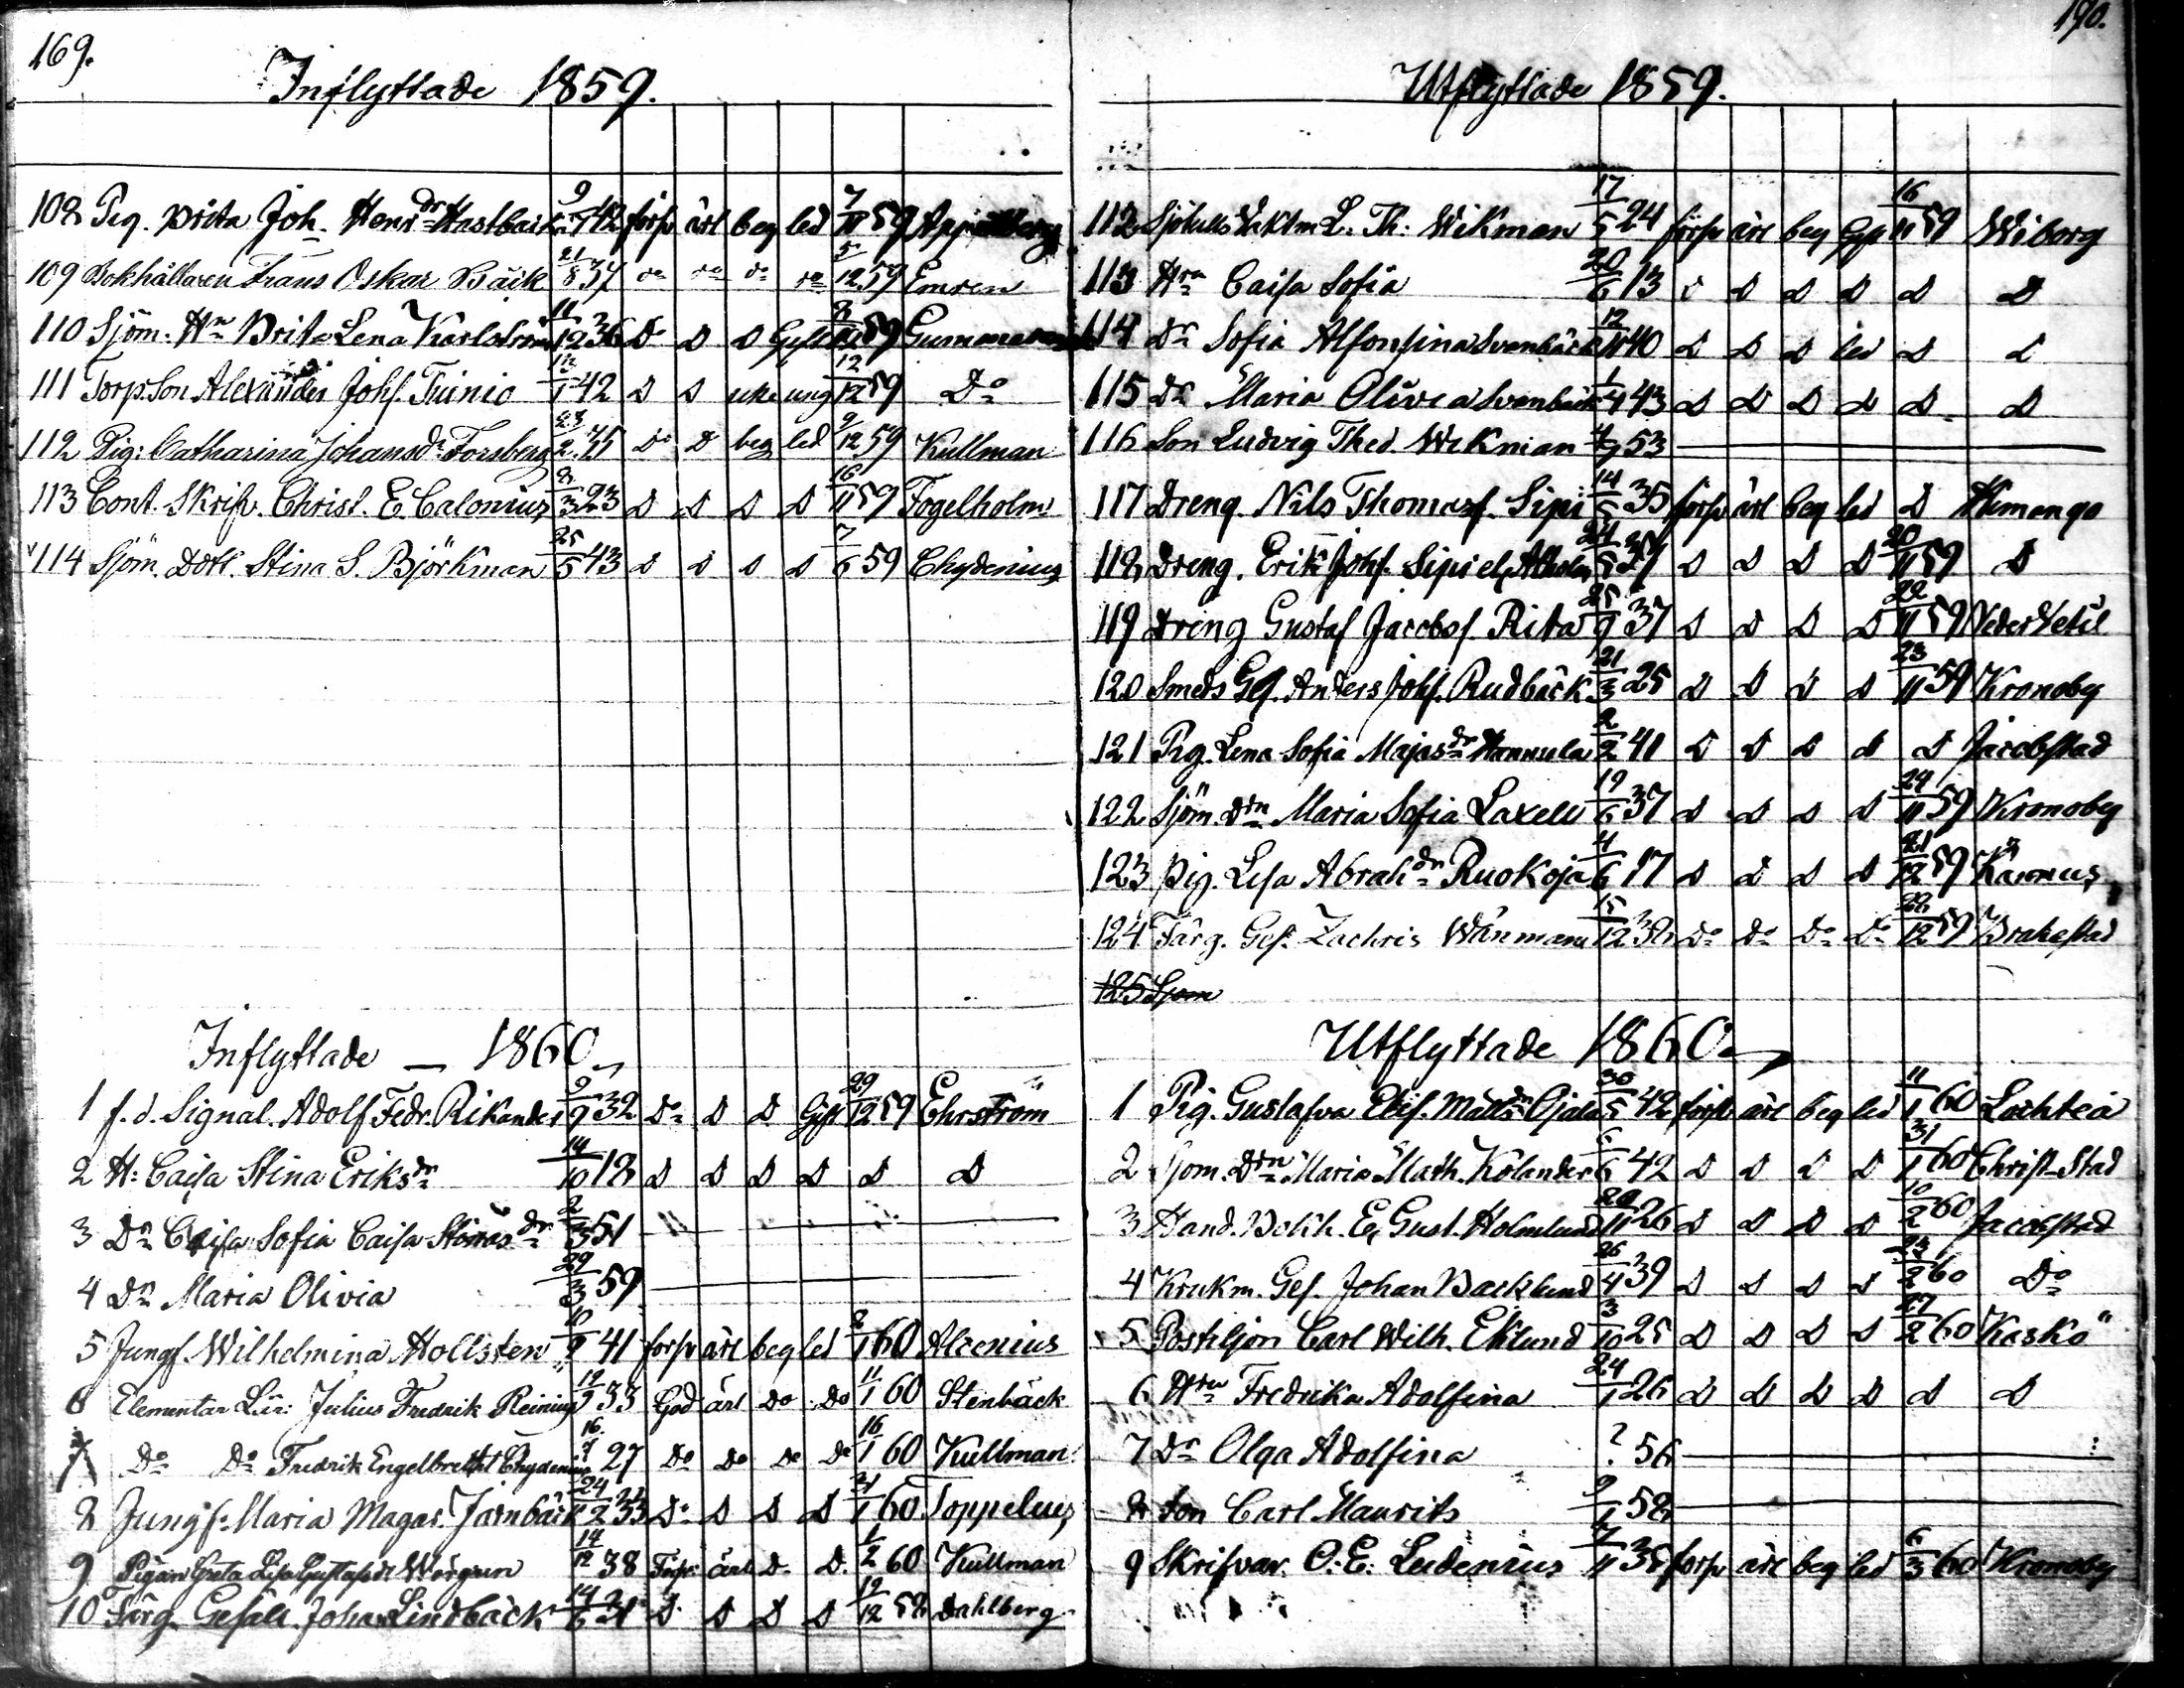 169.
Inflyttade 1859.
108 Pig. Brita Joh. Henr dr Hastbacka 9 42 försv ärl beg led 7/11 59 Appelberg
109 Bokhållaren Frans Oskar Bäck 21/8 37 do do do do 5/12 59 Emren
110 Sjöm. Hu Brita Lena Karlström 11/12 36 Do D D Gift 59
111 Torp.Son Alexander Johs. Tiinio 12/1 42 D D uke ung 12/12 59 Do
112 Pig: Catharina Johansdr Forsberg 23/2 35 Do D beg led 9/12 59 Kullman
113 Cont. Skrifv. Christ. E. Calonius 2/3 23 D D D D 16/11 59 Fogelholm
114 Sjöm. Dott. Stina S. Björkman 25/5 43 D D D D 7/6 59 Chydenius
Inflyttade — 1860
1 f.d. Signal. Adolf Fedr. Rikander 9/9 32 Do D D Gift 29/12 59 Ehrström
2 H: Caisa Stina Eriksdr 14/10 18 D D D D D D
3 Dr Caisa Sofia Caisa dr 2/3 51
4 Dr Maria Olivia 29/3 59
5 Jungf. Wilhelmina Hollsten 41 försv ärl beg led 2/1 60 Alcenius
6 Elementar Lär: Julius Fredrik Reinius 12/9 33 God ärl Do Do 11/1 60 Stenbäck
7 Do Do Fredrik Engelbrecht Chydenius 16 27 Do Do Do Do 16/1 60 Kullman
8 Jungf: Maria Magar. Järnbäck 24 33 Do D D D 31/1 60 Toppelius
9 Pigan Greta Lisa Gustafsdr 14/12 38 Förs: ärl. D. D. 1/2 60 Kullman
10 Färg. Gesäll. Johan Lindbäck 14/6 31 D D D D 19/12 58 Dahlberg
190.
Utflyttade 1859.
112 L. Th: Wikman 17/5 24 försv ärl beg Gft 16/11 59 Wiborg
113 Hru Caisa Sofia 20/6 13 D D D D D D
114 Dr Sofia Alfonsina Svenbäck 12/11 40 D D D led D D
115 Dr Maria Olivia Svenbäck 1/4 43 D D D D D D
116 Son Ludvig Thed. Wikman 53
117 Dreng. Nils Thomasf. Sipi 14/5 35 försv ärl beg led D Himango
118 Dreng. Erik Johs. Sipi el. 24/5 D D D D 20/11 59 D
119 Dreng Gustaf Jacobsf. Rita 25/9 37 D D D D 22/11 59 NederVetil
120 Smeds Gs. Anders Johs. Rudbäck 21/3 25 D D D D 23/11 59 Kronoby
121 Pig. Lena Sofia Majasdr Hannula 2/2 41 D D D D D Jacobstad
122 Sjöm. Dtr Maria Sofia Laxell 19/6 37 D D D D 24/11 59 Kronoby
123 Pig. Lisa Abrahdr Ruokoja 4/6 17 D D D D 21/12 59
124 Färg. Ges. Zachris Wänman 15/12 38 Do Do Do Do 22/12 59 Brahestad
125 Sjom
Utflyttade 1860
1 Pig. Gustafva Elis. Mattsdr Ojala 30/5 42 försv ärl beg led 11/1 60 Lochteå
2 Sjom. Dtr Maria Math. Kolander 6/6 42 D D D D 31/1 60 Christ-Stad
3 Hand. Bokh. E. Gust. Holmlund 26 D D D D 10/2 60 Jacobstad
4 Krukm. Ges. Johan Backlund 26/4 39 D D D D 23/2 60 Do
5 Postiljon Carl Wilh. Eklund 3/10 25 D D D D 27/2 60 Kaskö
6 Hru Fredrika Adolfina 24/1 26 D D D D D D
7 Dr Olga Adolfina ? 56
8 Son Carl Maurits 9/1 58
9 Skrifvar. O. E. Ludenius 7/11 38 försv ärl beg led 6/3 60 Kronoby